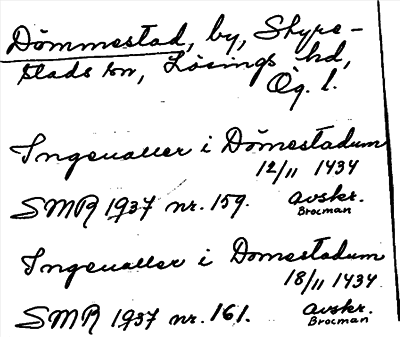 Dömmestad, by, Skyre-
stads sn, Lösings hd,
Ög. l.
Ingeualler i Dömestadum
12/11 1434
SMR 1937 nr. 159. avskr.
Brocman
Ingeualler i Domestadum
18/11 1434
SMR 1937 nr. 161. avskr.
Brocman